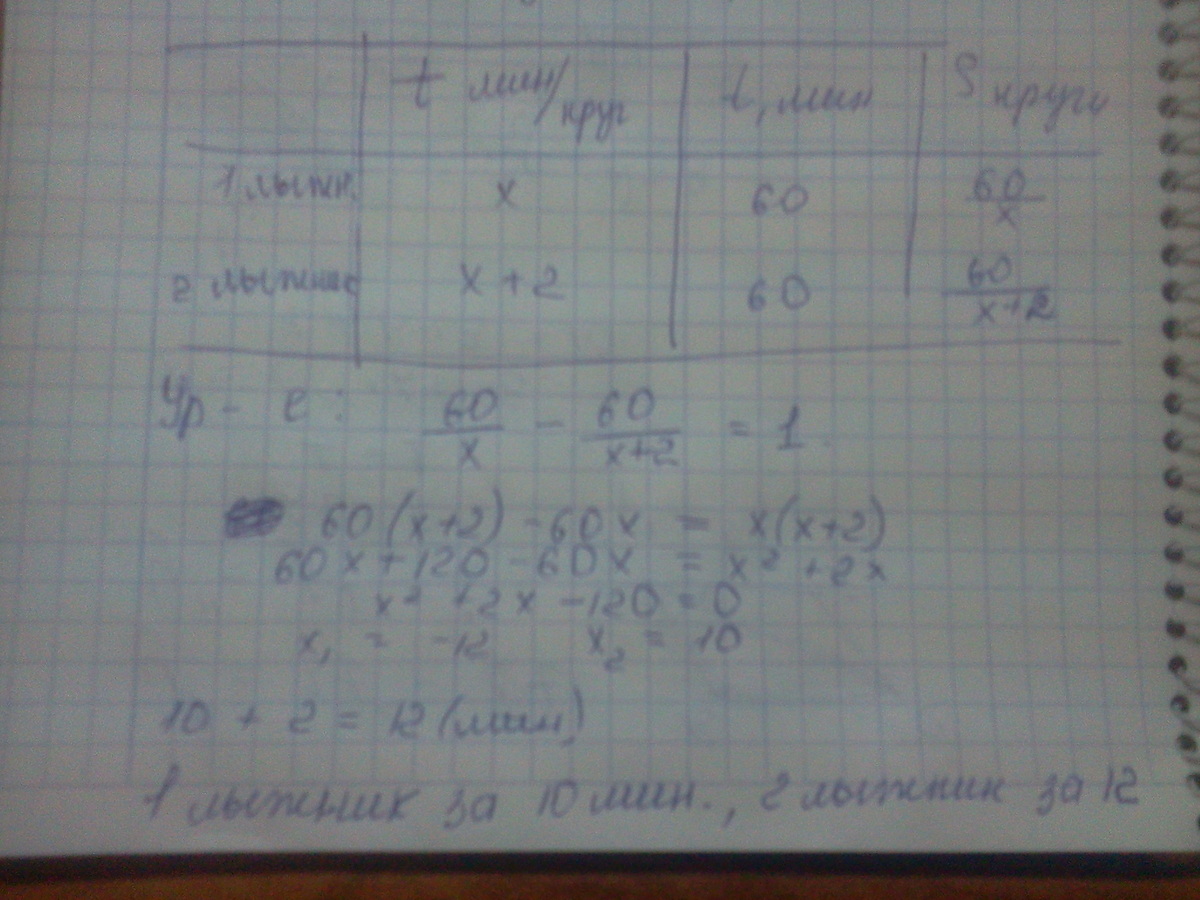 t мин/круг t, мин S круги
1 лыжн. x 60 60/x
2 лыжник x + 2 60 60/x+2
Ур - е: 60/x - 60/x+2 = 1.
60(x+2) - 60x = x(x+2)
60x + 120 - 60x = x² + 2x
x² + 2x - 120 = 0
x₁ = -12 x₂ = 10
10 + 2 = 12 (мин)
1 лыжник за 10 мин., 2 лыжник за 12